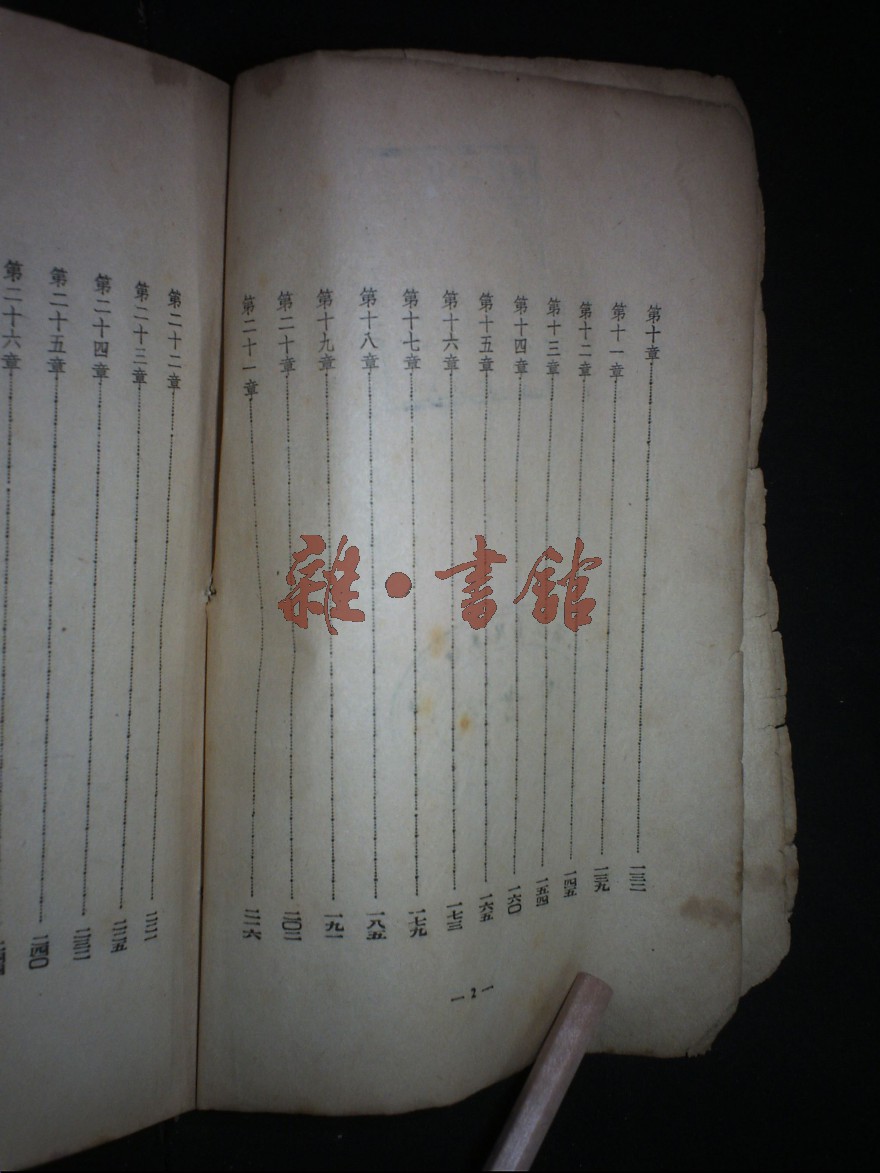 第十章……一三二
第十一章……一三九
第十二章……一四五
第十三章……一五四
第十四章……一六〇
第十五章……一六五
第十六章……一七三
第十七章……一七九
第十八章……一八五
第十九章……一九一
第二十章……二〇二
第二十一章
—2—
第二十二章
第二十三章……二二五
第二十四章
第二十五章……二四〇
第二十六章
雜·書館